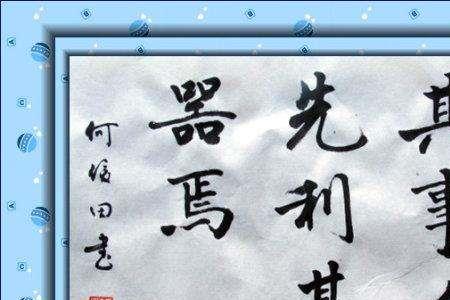 其事
先利其
器焉
何俊田書